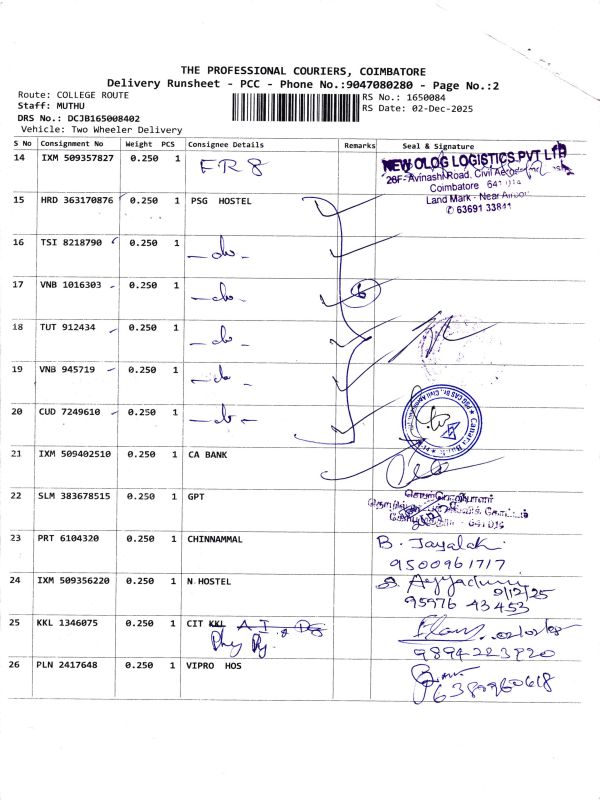 THE PROFESSIONAL COURIERS, COIMBATORE
Delivery Runsheet - PCC - Phone No.:9047080280 - Page No.:2
Route: COLLEGE ROUTE
RS No.: 1650084
Staff: MUTHU
RS Date: 02-Dec-2025
DRS No.: DCJB165008402
Vehicle: Two Wheeler Delivery
S No Consignment No Weight PCS Consignee Details Remarks Seal & Signature
14 IXM 509357827 0.250 1 ER 8
NEW OLOG LOGISTICS PVT LTD
28F, Avinashi Road, Civil
Coimbatore 641 014
Land Mark - Near Airport
✆ 63691 33841
15 HRD 363170876 0.250 1 PSG HOSTEL
16 TSI 8218790 0.250 1 -do-
17 VNB 1016303 0.250 1 -do- 6
18 TUT 912434 0.250 1 -do-
19 VNB 945719 0.250 1 -do-
20 CUD 7249610 0.250 1 -do-
21 IXM 509402510 0.250 1 CA BANK
22 SLM 383678515 0.250 1 GPT
641 014
23 PRT 6104320 0.250 1 CHINNAMMAL B. Jayalak
9500961717
24 IXM 509356220 0.250 1 N HOSTEL
2/12/25
95976 43453
25 KKL 1346075 0.250 1 CIT KKL A I & DS
Phy
9894223920
26 PLN 2417648 0.250 1 VIPRO HOS
6389960618